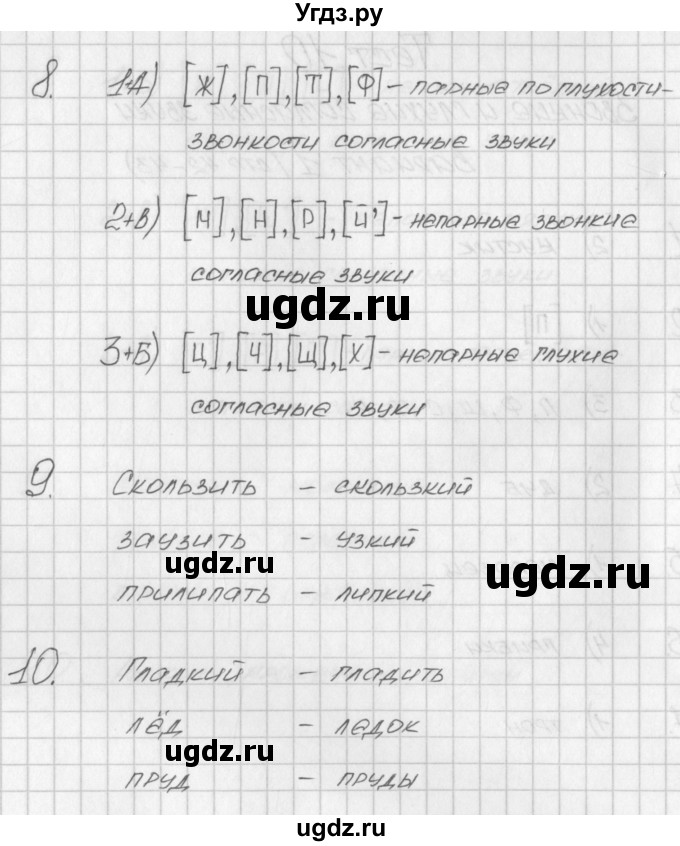 Угдз.ру
8. 1+А) [Ж],[П],[Т],[Ф] – парные по глухости-
звонкости согласные звуки
2+В) [М],[Н],[Р],[Й'] – непарные звонкие
согласные звуки
ugdz.ru
ugdz.ru
3+Б) [Ц],[Ч],[Щ],[Х] – непарные глухие
согласные звуки
9. Скользить – скользкий
заузить – узкий
ugdz.ru
ugdz.ru
прилипать – липкий
10. Гладкий – гладить
лёд – ледок
ugdz.ru
пруд – пруды
ugdz.ru